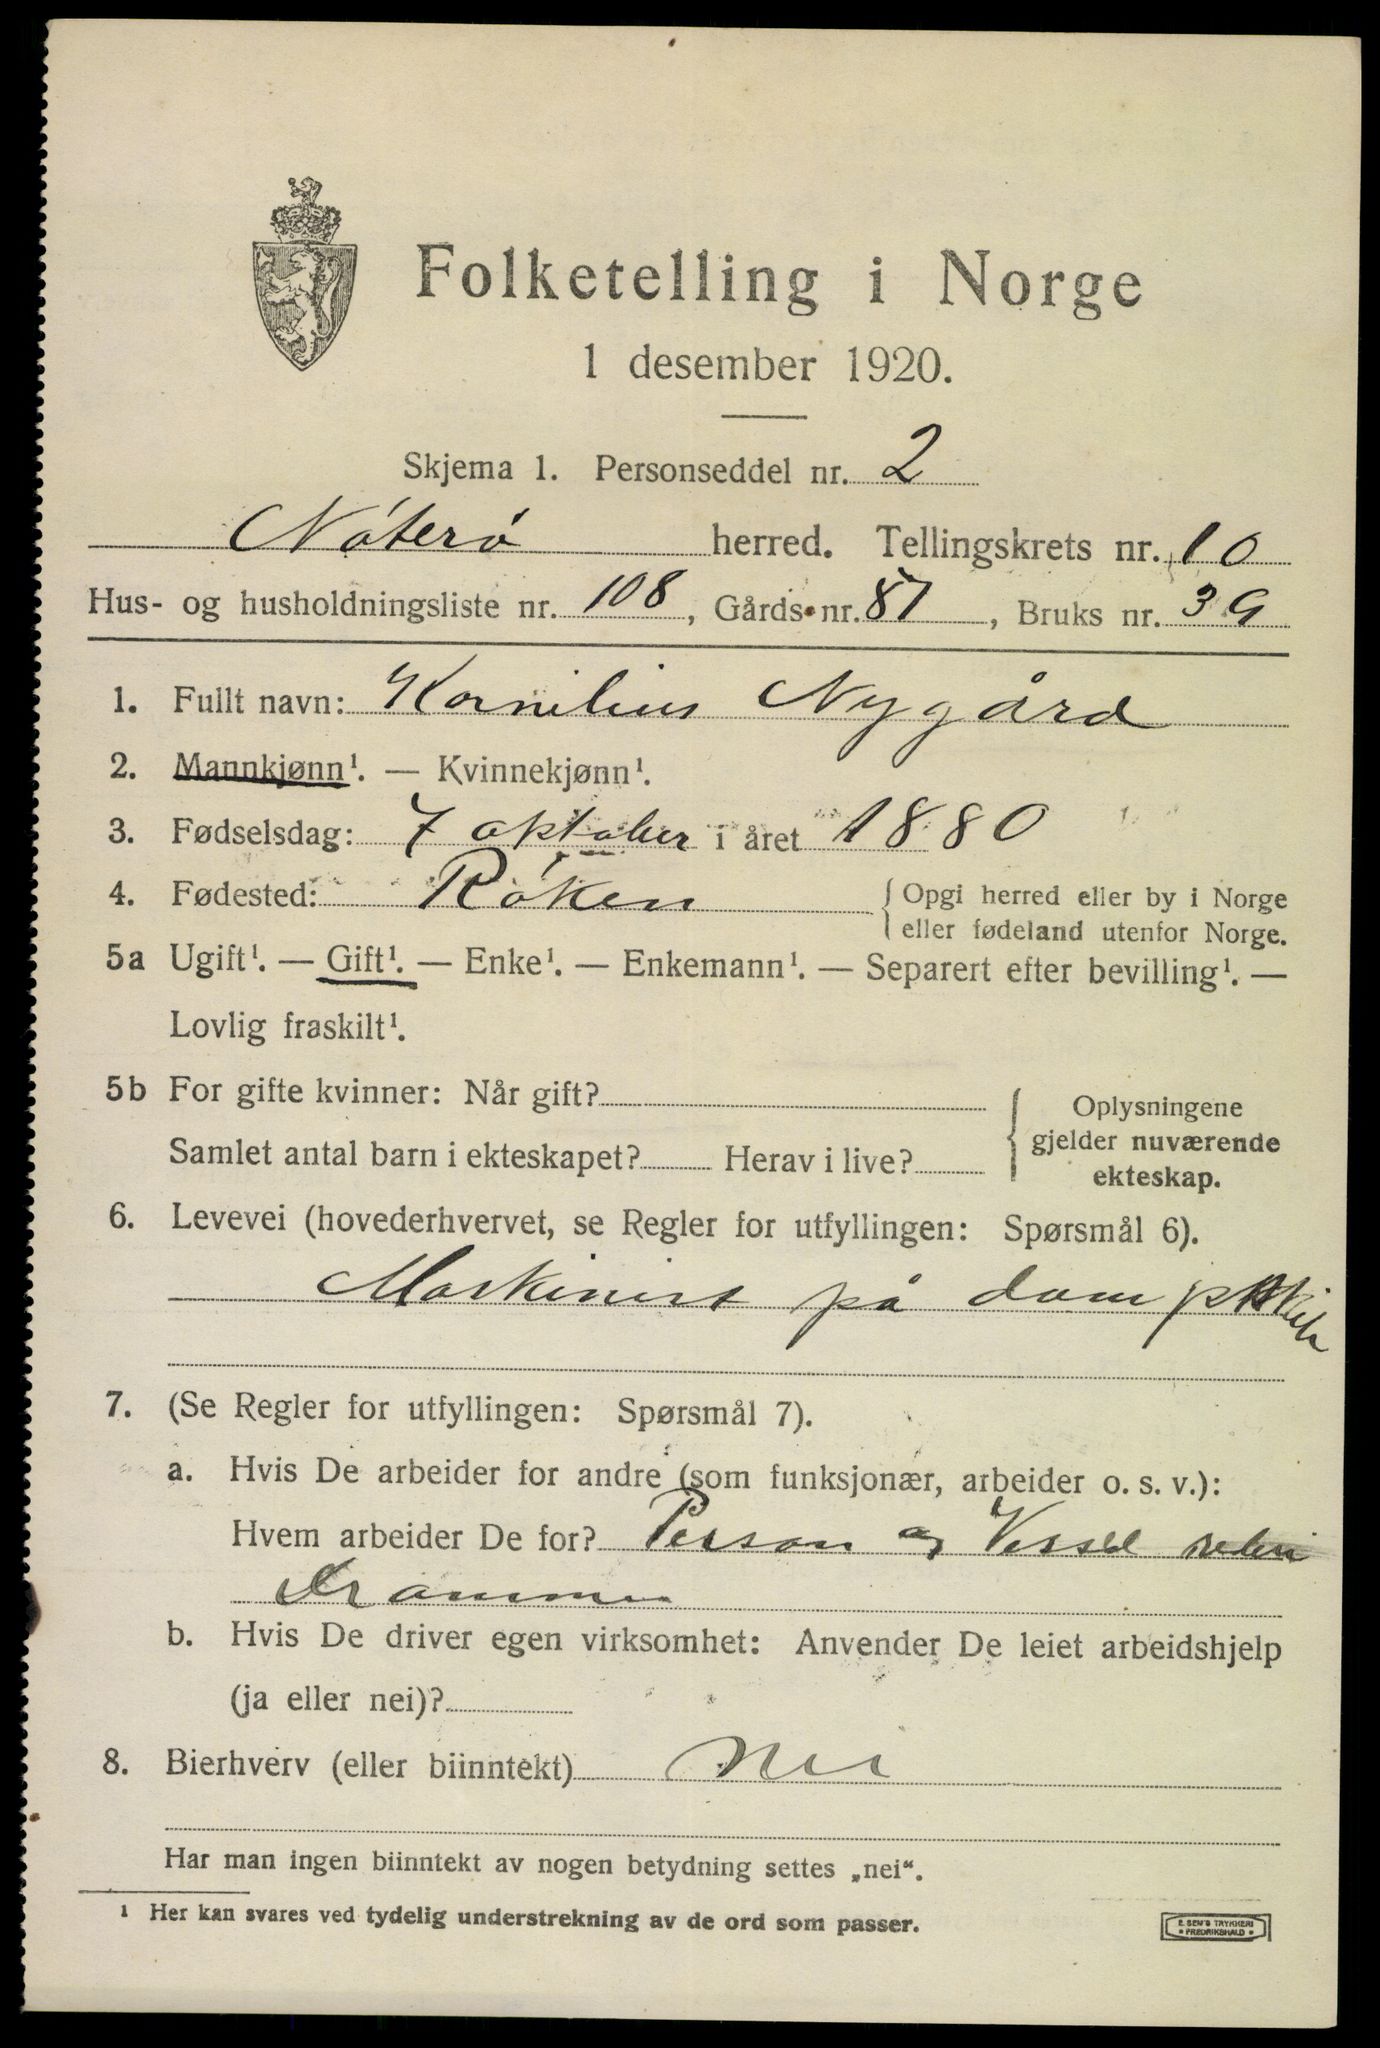 Folketelling i Norge
1 desember 1920.
Skjema 1. Personseddel nr. 2
Nóteró herred. Tellingskrets nr. 10
Hus- og husholdningsliste nr. 108, Gårds nr. 81, Bruks nr. 39
1. Fullt navn: Kornilius Nygård
2. Mannkjønn¹. — Kvinnekjønn¹.
3. Fødselsdag: 7 oktober i året 1880
4. Fødested: Róken { Opgi herred eller by i Norge
eller fødeland utenfor Norge.
5a Ugift¹. — Gift¹. — Enke¹. — Enkemann¹. — Separert efter bevilling¹. —
Lovlig fraskilt¹.
5b For gifte kvinner: Når gift? { Oplysningene
gjelder nuværende
ekteskap.
Samlet antal barn i ekteskapet? Herav i live?
6. Levevei (hovederhvervet, se Regler for utfyllingen: Spørsmål 6).
Maskinist på dampskib
7. (Se Regler for utfyllingen: Spørsmål 7).
a. Hvis De arbeider for andre (som funksjonær, arbeider o. s. v.):
Hvem arbeider De for? Person og Vessel rederi
Drammen
b. Hvis De driver egen virksomhet: Anvender De leiet arbeidshjelp
(ja eller nei)?
8. Bierhverv (eller biinntekt) Nei
Har man ingen biinntekt av nogen betydning settes „nei“.
1 Her kan svares ved tydelig understrekning av de ord som passer.
E. SEM'S TRYKKERI
* FREDRIKSHALD *